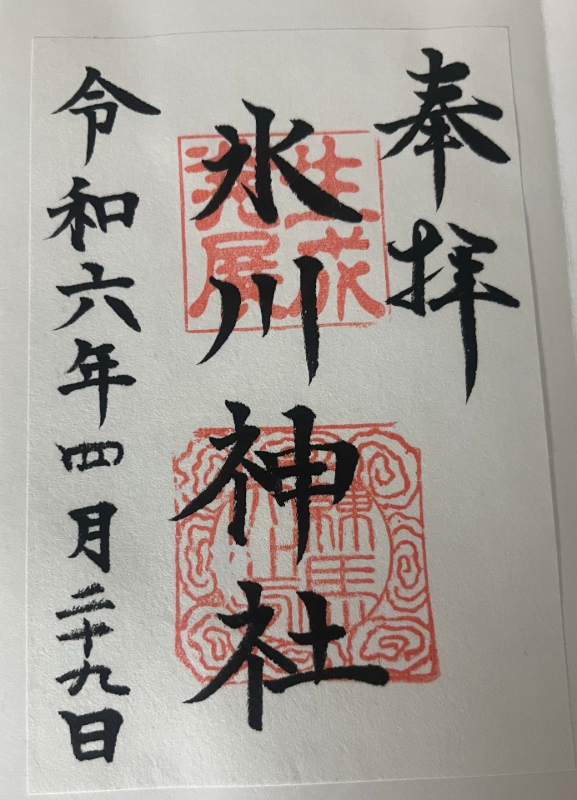 奉拝
氷川神社
令和六年四月二十九日
生成発展